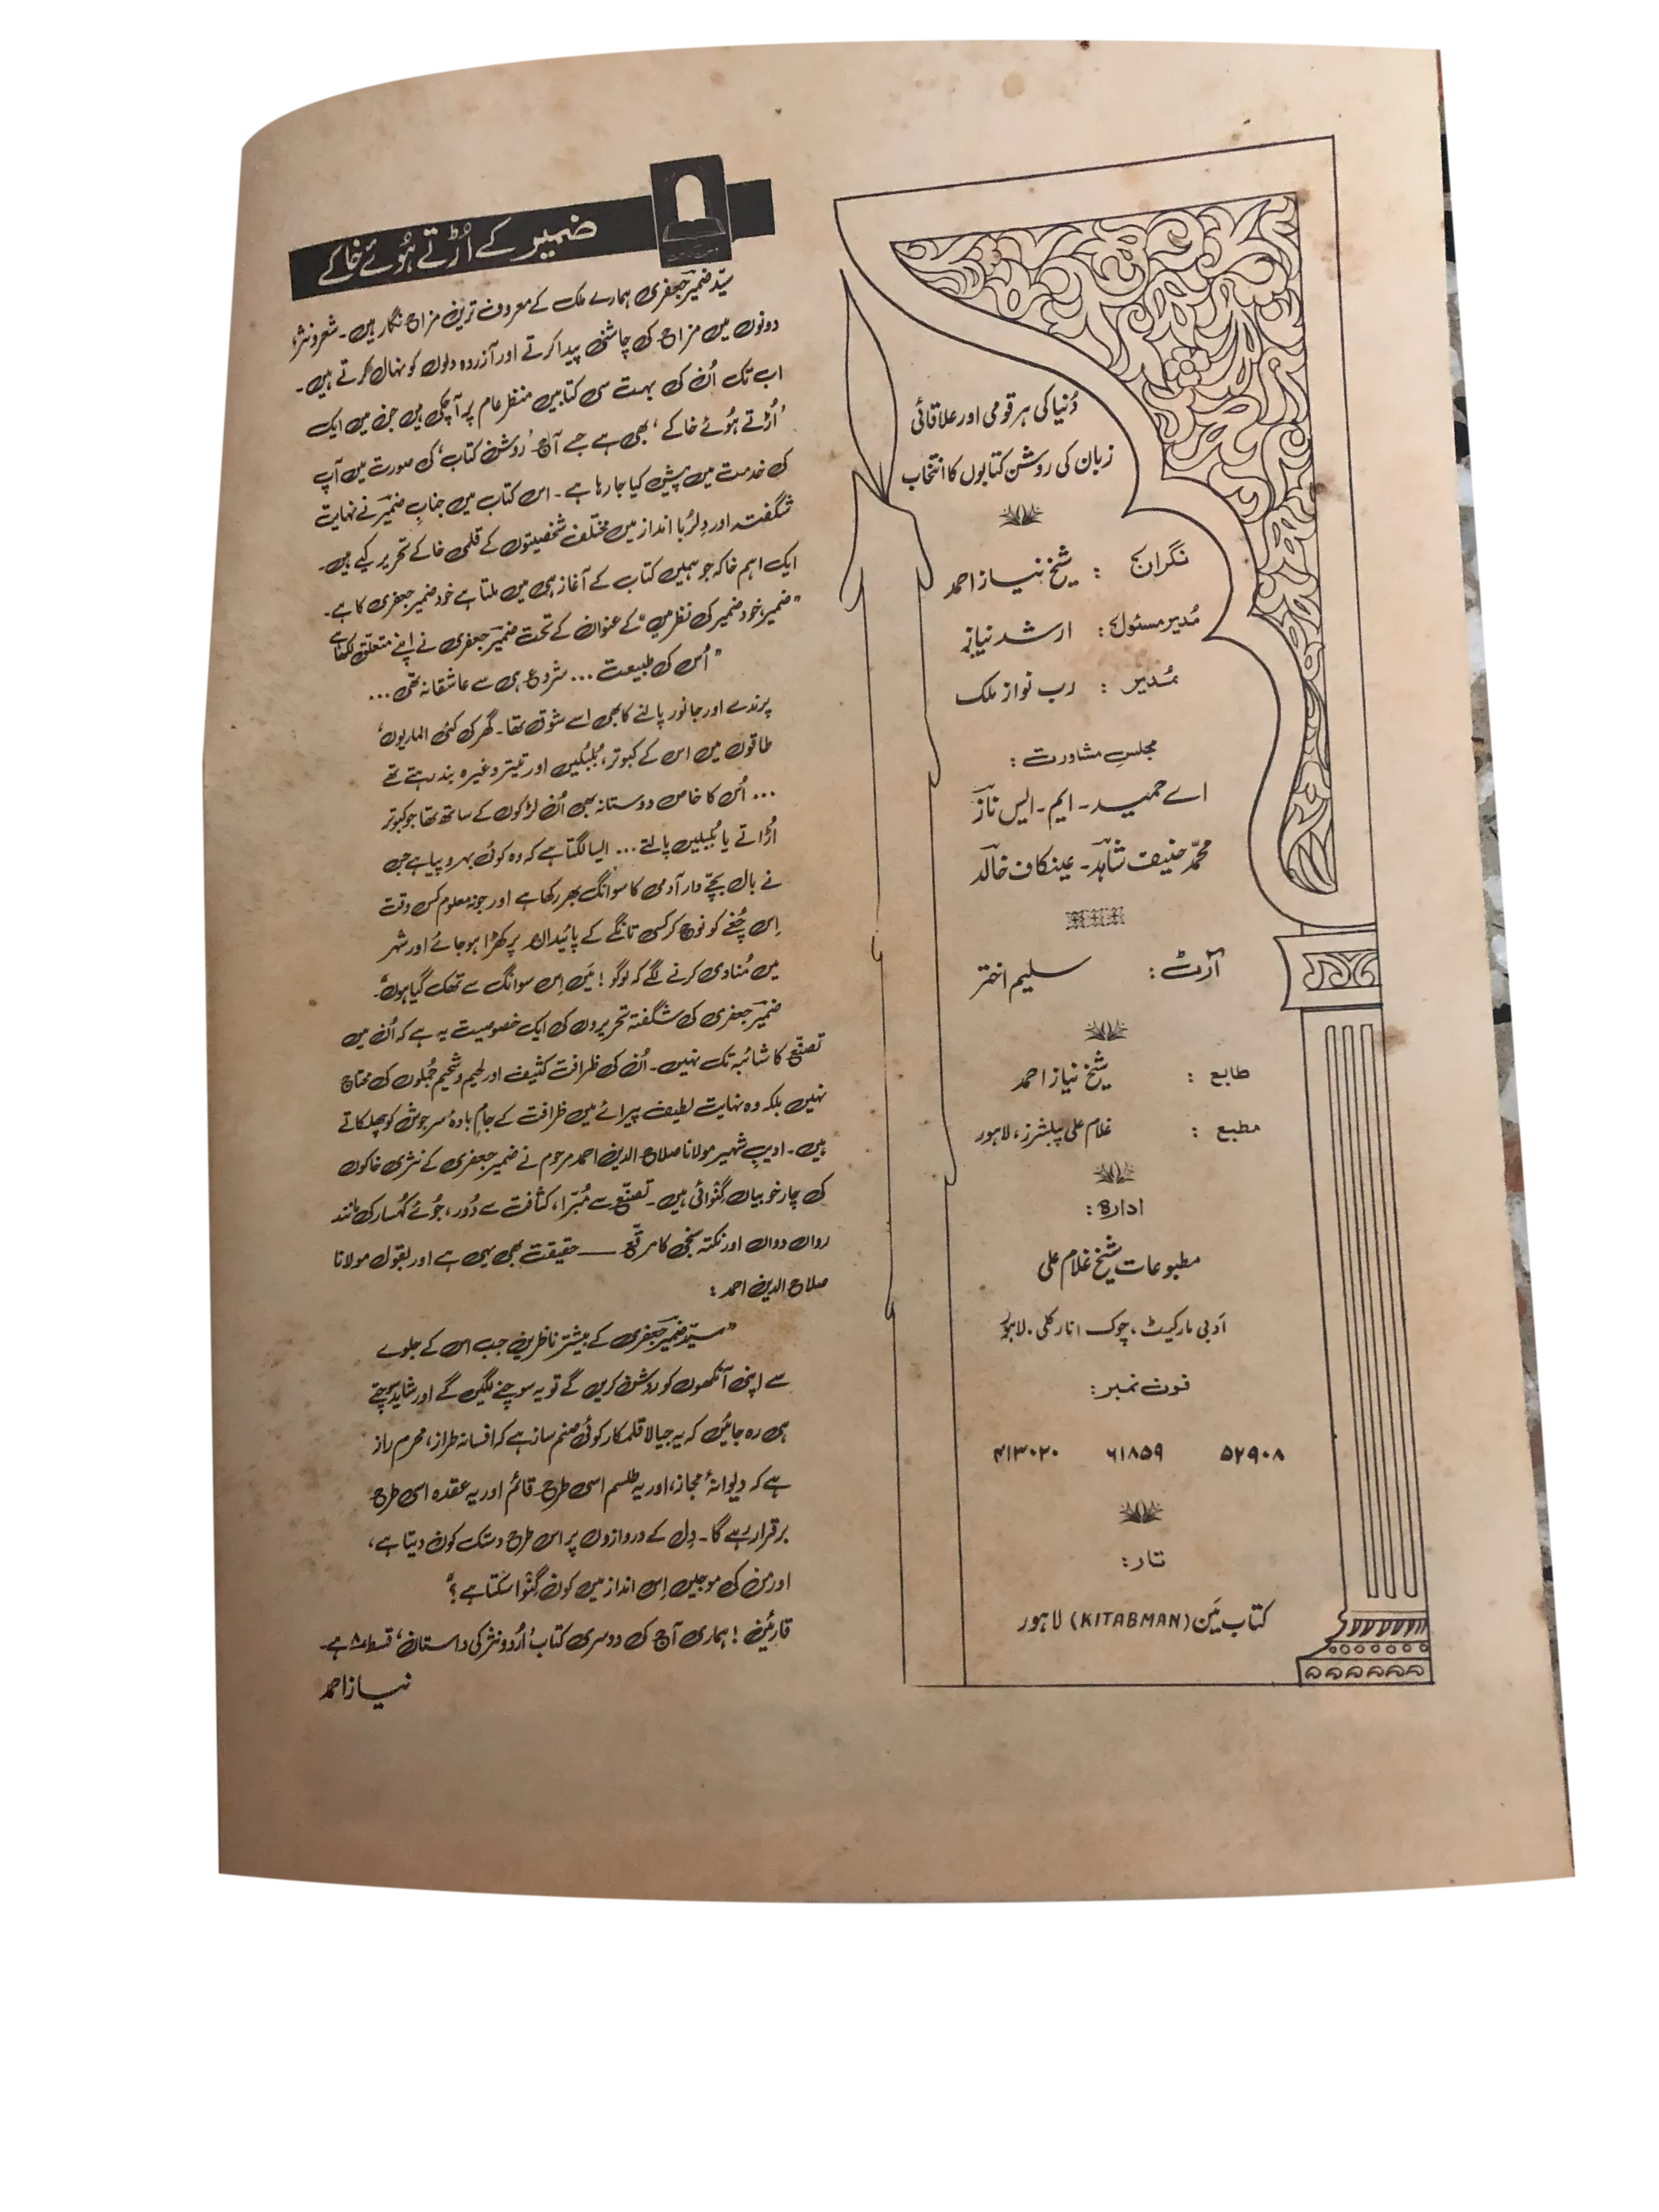 دُنیا کی ہر قومی اور علاقائی
زبان کی روشن کتابوں کا انتخاب
نگران : شیخ نیاز احمد
مُدیر مسئول : ارشد نیاز
مُدیر : رب نواز ملک
مجلسِ مشاورت :
اے حمید ۔ ایم ۔ ایس نازؔ
محمّد حنیف شاہدؔ ۔ عین کاف خالدؔ
آرٹ : سلیم اختر
طابع : شیخ نیاز احمد
مطبع : غلام علی پبلشرز، لاہور
ادارہ :
مطبوعات شیخ غلام علی
ادبی مارکیٹ، چوک انارکلی. لاہور
فون نمبر :
۵۲۹۰۸ ۶۱۸۵۹ ۴۱۳۰۲۰
تار :
کتاب مَین (KITABMAN) لاہور
ضمیر کے اُڑتے ہُوئے خاکے
سیّد ضمیرؔ جعفری ہمارے ملک کے معروف ترین مزاح نگار ہیں۔ شعر و نثر،
دونوں میں مزاح کی چاشنی پیدا کرتے اور آزردہ دلوں کو نہال کرتے ہیں۔
اب تک اُن کی بہت سی کتابیں منظرِ عام پر آ چکی ہیں جن میں ایک
'اُڑتے ہُوئے خاکے' بھی ہے جسے آج 'روشن کتاب' کی صورت میں آپ
کی خدمت میں پیش کیا جا رہا ہے۔ اس کتاب میں جنابِ ضمیرؔ نے نہایت
شگفتہ اور دِلرُبا انداز میں مختلف شخصیتوں کے قلمی خاکے تحریر کیے ہیں۔
ایک اہم خاکہ جو ہمیں کتاب کے آغاز ہی میں ملتا ہے خود ضمیر جعفری کا ہے۔
"ضمیر، خود ضمیر کی نظر میں" کے عنوان کے تحت ضمیرؔ جعفری نے اپنے متعلق لکھا ہے
"اُس کی طبیعت ... شروع ہی سے عاشقانہ تھی ...
پرندے اور جانور پالنے کا بھی اسے شوق تھا۔ گھر کی کئی الماریوں،
طاقوں میں اس کے کبوتر، بُلبُلیں اور تیتر وغیرہ بند رہتے تھے
... اُس کا خاص دوستانہ بھی اُن لڑکوں کے ساتھ تھا جو کبوتر
اُڑاتے یا بُلبلیں پالتے ... ایسا لگتا ہے کہ وہ کوئی بہروپیا ہے جس
نے بال بچّے دار آدمی کا سوانگ بھر رکھا ہے اور جو نہ معلوم کس وقت
اِس چُغے کو نوچ کر کسی تانگے کے پائیدان پر کھڑا ہو جائے اور شہر
میں مُنادی کرنے لگے کہ لوگو! مَیں اِس سوانگ سے تھک گیا ہوں"۔
ضمیرؔ جعفری کی شگفتہ تحریروں کی ایک خصوصیت یہ ہے کہ اُن میں
تصنّع کا شائبہ تک نہیں۔ اُن کی ظرافت کثیف اور لحیم و شحیم جُملوں کی محتاج
نہیں بلکہ وہ نہایت لطیف پیرائے میں ظرافت کے جامِ بادۂ سرجوش کو چھلکاتے
ہیں۔ ادیبِ شہیر مولانا صلاح الدین احمد مرحوم نے ضمیر جعفری کے نثری خاکوں
کی چار خوبیاں گِنوائی ہیں۔ تصنّع سے مُبرّا، کثافت سے دُور، جُوئے کُہسار کی مانند
رواں دواں اور نکتہ سنجی کا مرقع ــــ حقیقت بھی یہی ہے اور بقول مولانا
صلاح الدین احمد :
"سیّد ضمیرؔ جعفری کے بیشتر ناظرین جب اس کے جلوے
سے اپنی آنکھوں کو روشن کریں گے تو یہ سوچنے لگیں گے اور شاید سوچتے
ہی رہ جائیں کہ یہ جیالا قلمکار کوئی صنم ساز ہے کہ افسانہ طراز، محرمِ راز
ہے کہ دیوانۂ مجاز، اور یہ طلسم اسی طرح قائم اور یہ عقدہ اسی طرح
برقرار رہے گا۔ دِل کے دروازوں پر اس طرح دستک کون دیتا ہے،
اور من کی موجیں اِس انداز میں کون گِنوا سکتا ہے؟"
قارئین! ہماری آج کی دوسری کتاب 'اُردو نثر کی داستان' قسط ۸ ہے۔
نیاز احمد